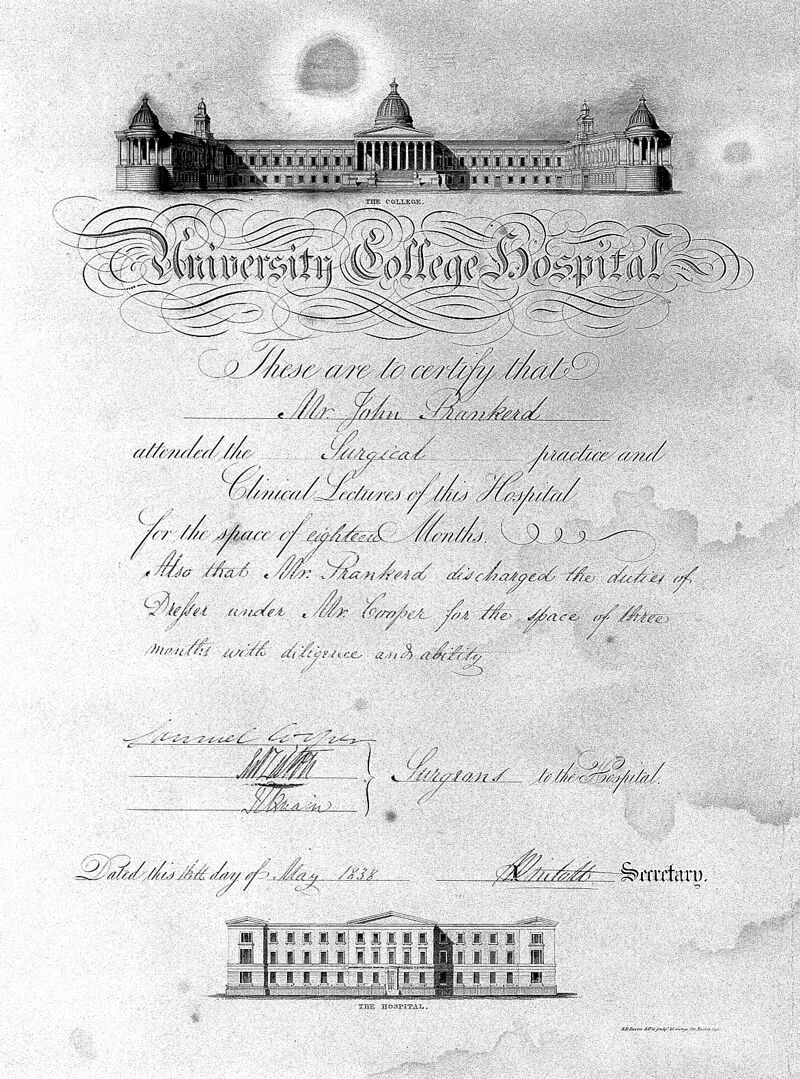 THE COLLEGE.
University College Hospital
These are to certify that
Mr. John Prankerd
attended the Surgical practice and
Clinical Lectures of this Hospital
for the space of eighteen Months.
Also that Mr. Prankerd discharged the duties of
Dresser under Mr. Cooper for the space of three
months with diligence and ability
Samuel Cooper
R. Quain
Surgeons to the Hospital.
Dated this day of May 1838
Secretary.
THE HOSPITAL.